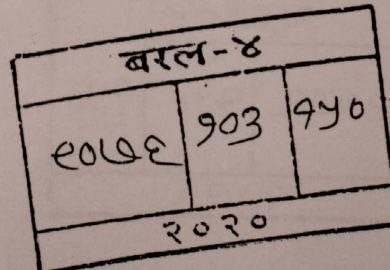 बरल-४
९०७६ १०३ १५०
२०२०